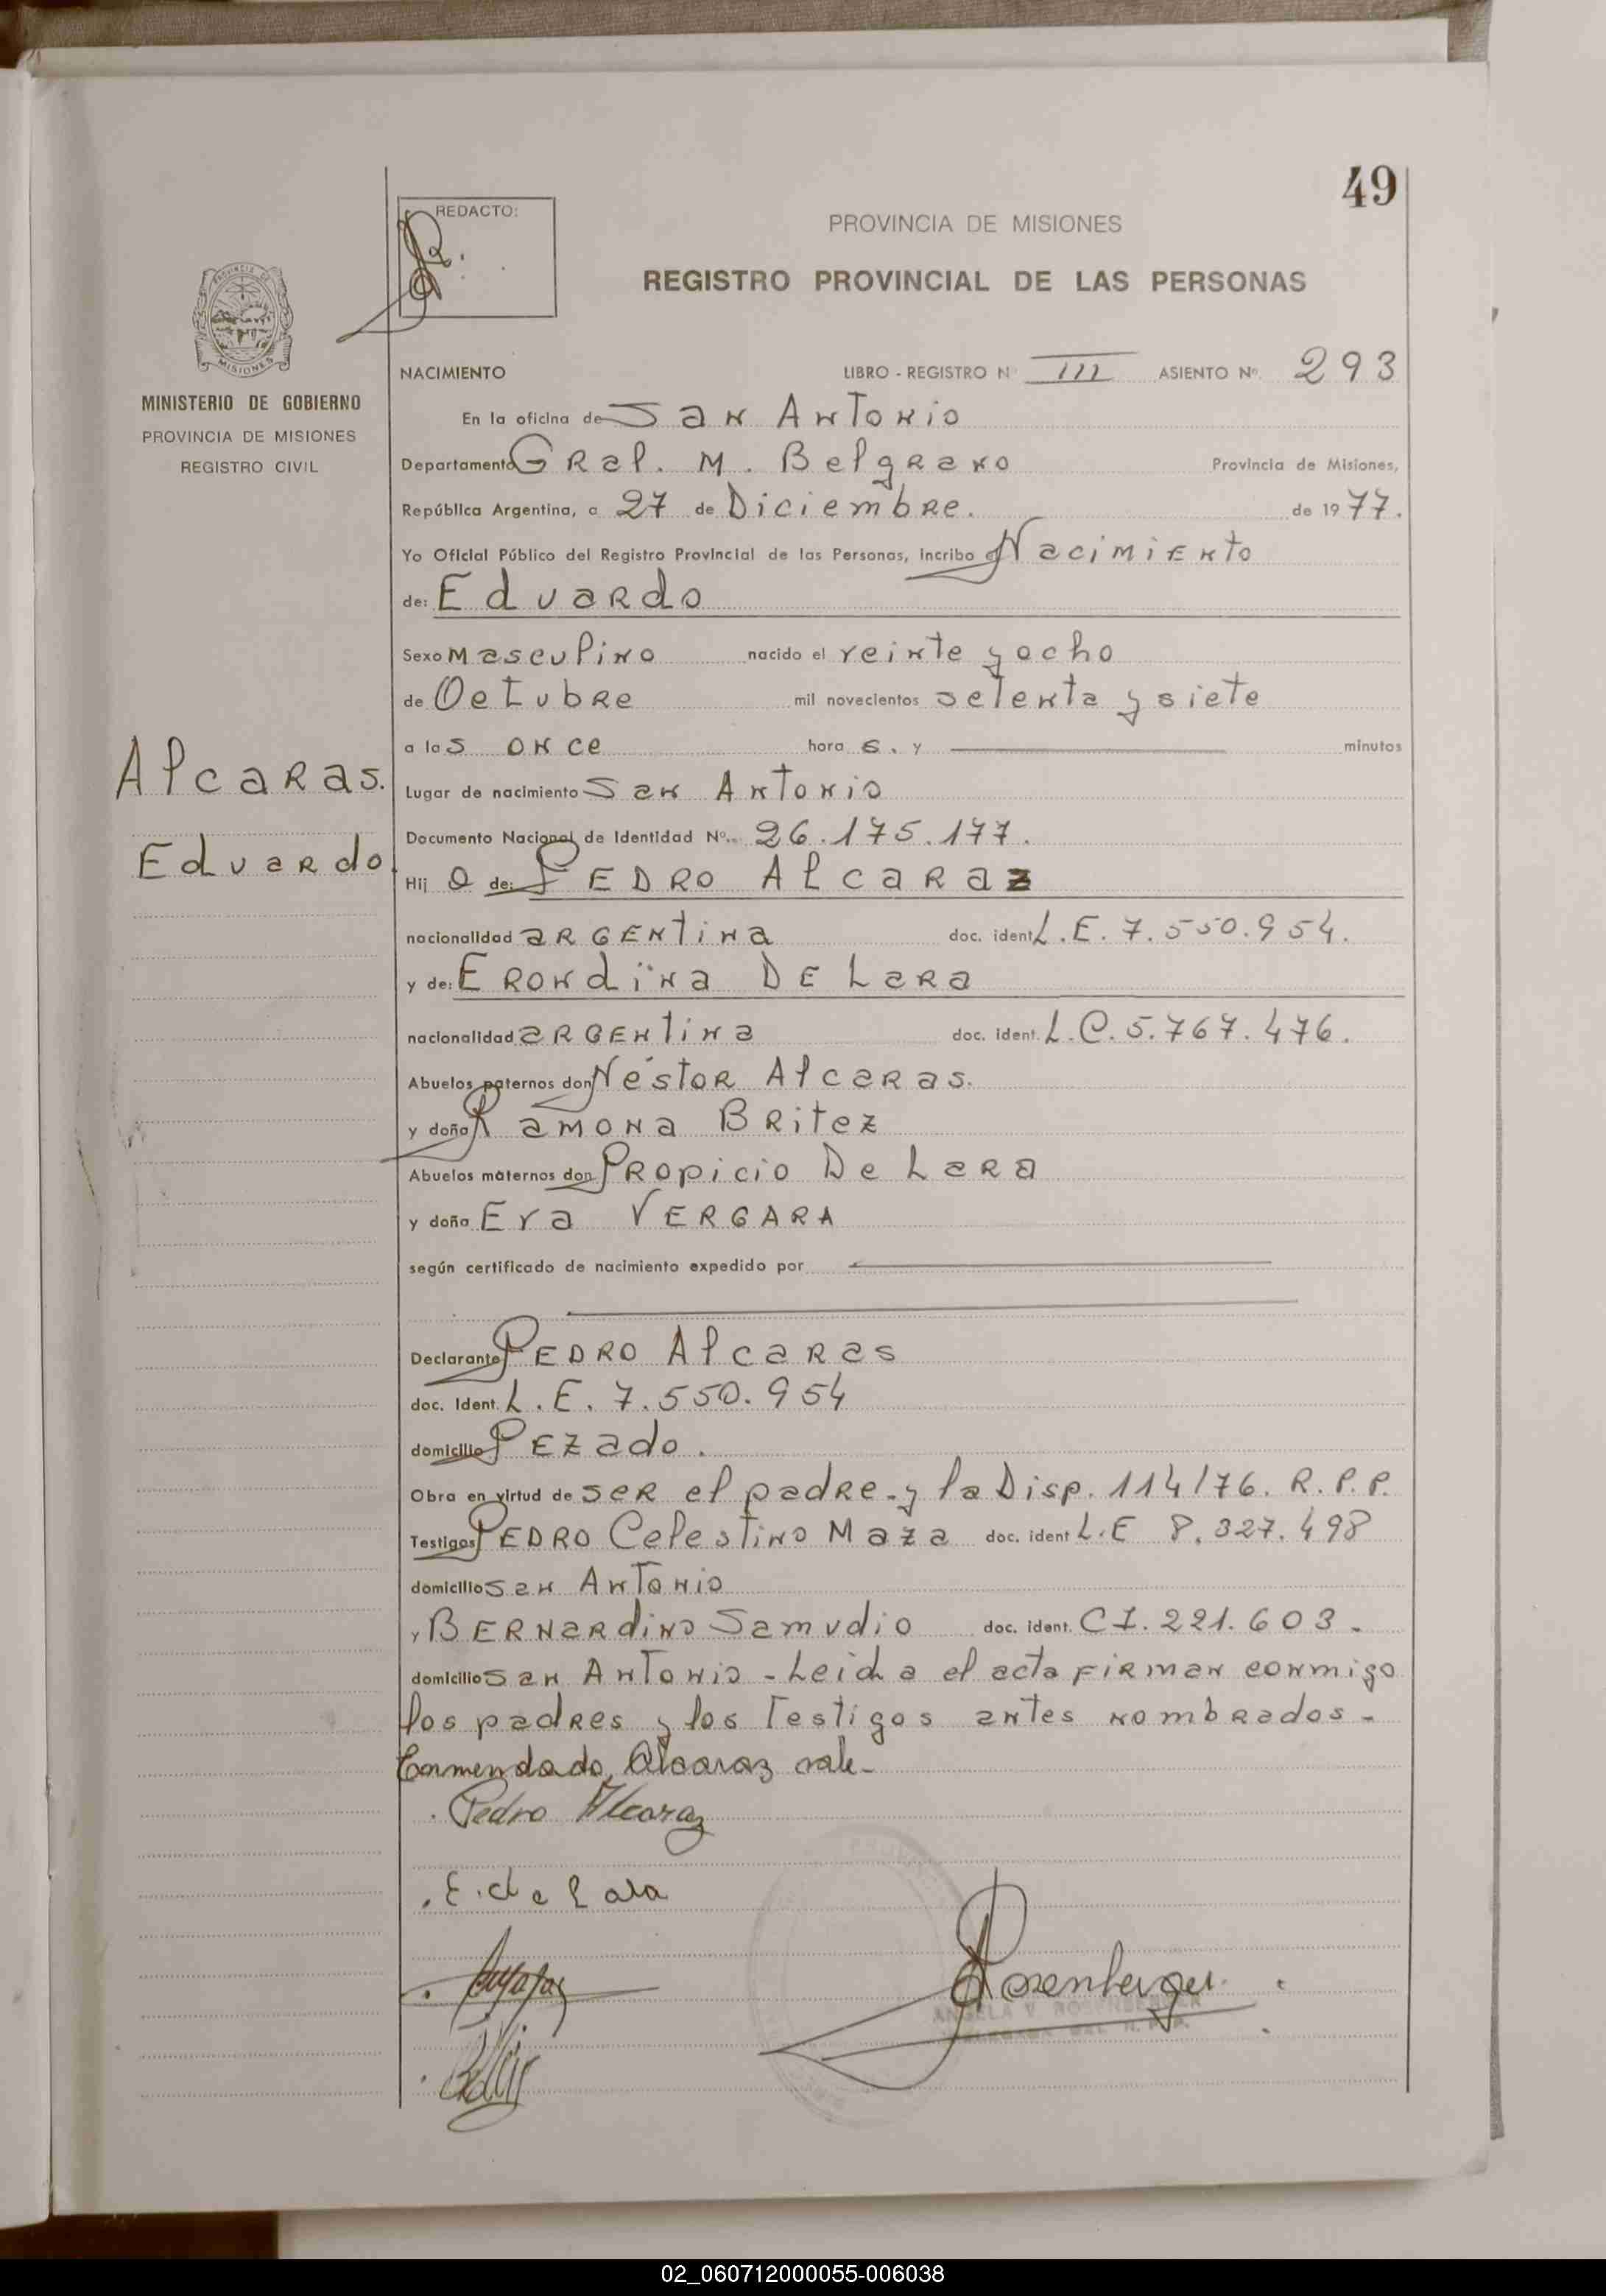 49
REDACTO:
PROVINCIA DE MISIONES
REGISTRO PROVINCIAL DE LAS PERSONAS
PROVINCIA DE
MISIONES
MINISTERIO DE GOBIERNO
PROVINCIA DE MISIONES
REGISTRO CIVIL
NACIMIENTO LIBRO - REGISTRO Nº III ASIENTO Nº 293
En la oficina de San Antonio
Departamento Gral. M. Belgrano Provincia de Misiones,
República Argentina, a 27 de Diciembre. de 1977.
Yo Oficial Público del Registro Provincial de las Personas, incribo el Nacimiento
de: Eduardo
Sexo Masculino nacido el veinte y ocho
de Octubre mil novecientos setenta y siete
a las once horas. y minutos
Alcaras.
Eduardo.
Lugar de nacimiento San Antonio
Documento Nacional de Identidad Nº. 26.175.177.
Hijo de: Pedro Alcaraz
nacionalidad argentina doc. ident. L.E. 7.550.954.
y de: Erondina De Lara
nacionalidad argentina doc. ident. L.C. 5.767.476.
Abuelos paternos don Néstor Alcaras.
y doña Ramona Britez
Abuelos maternos don Propicio De Lara
y doña Eva Vergara
según certificado de nacimiento expedido por
Declarante Pedro Alcaras
doc. Ident. L.E. 7.550.954
domicilio Pezado.
Obra en virtud de ser el padre. y la Disp. 114/76. R.P.P.
Testigos Pedro Celestino Maza doc. ident L.E 8.327.498
domicilio San Antonio
y Bernardino Samudio doc. ident. CI. 221.603.
domicilio San Antonio - Leida el acta firman conmigo
los padres y los Testigos antes nombrados.-
Enmendado, Alcaraz vale-
Pedro Alcaraz
E. de Lara
Rosenberger
ANGELA V. ROSENBERGER
02_060712000055-006038